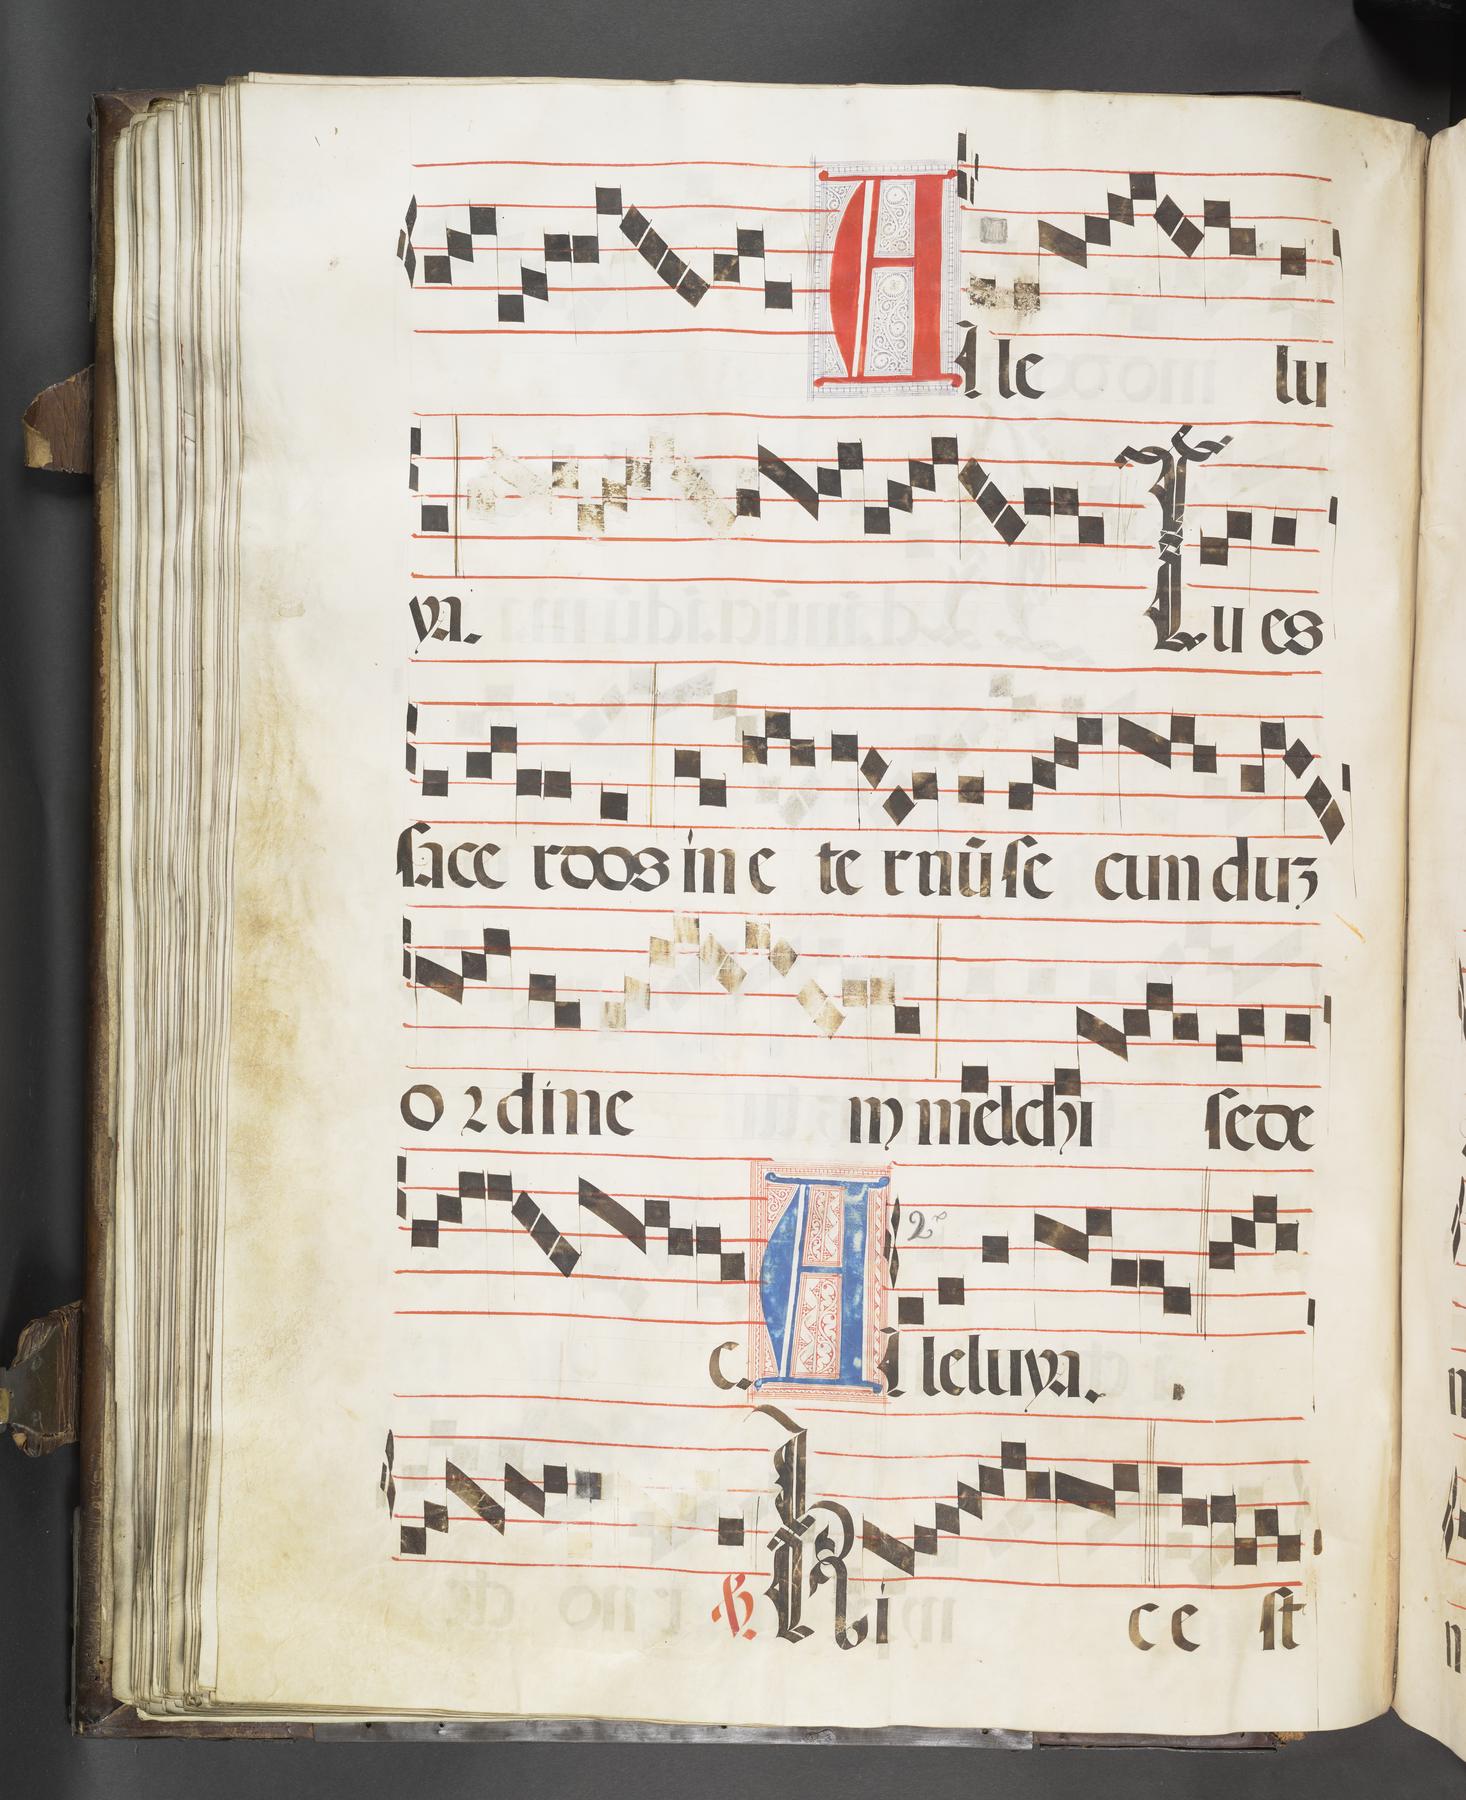 Alle lu
ya. Tu es
sace rdos in e te rnũ se cunduz
o rdine m melchi sede
c. Alleluya.
2ª
℟. Hi c e st